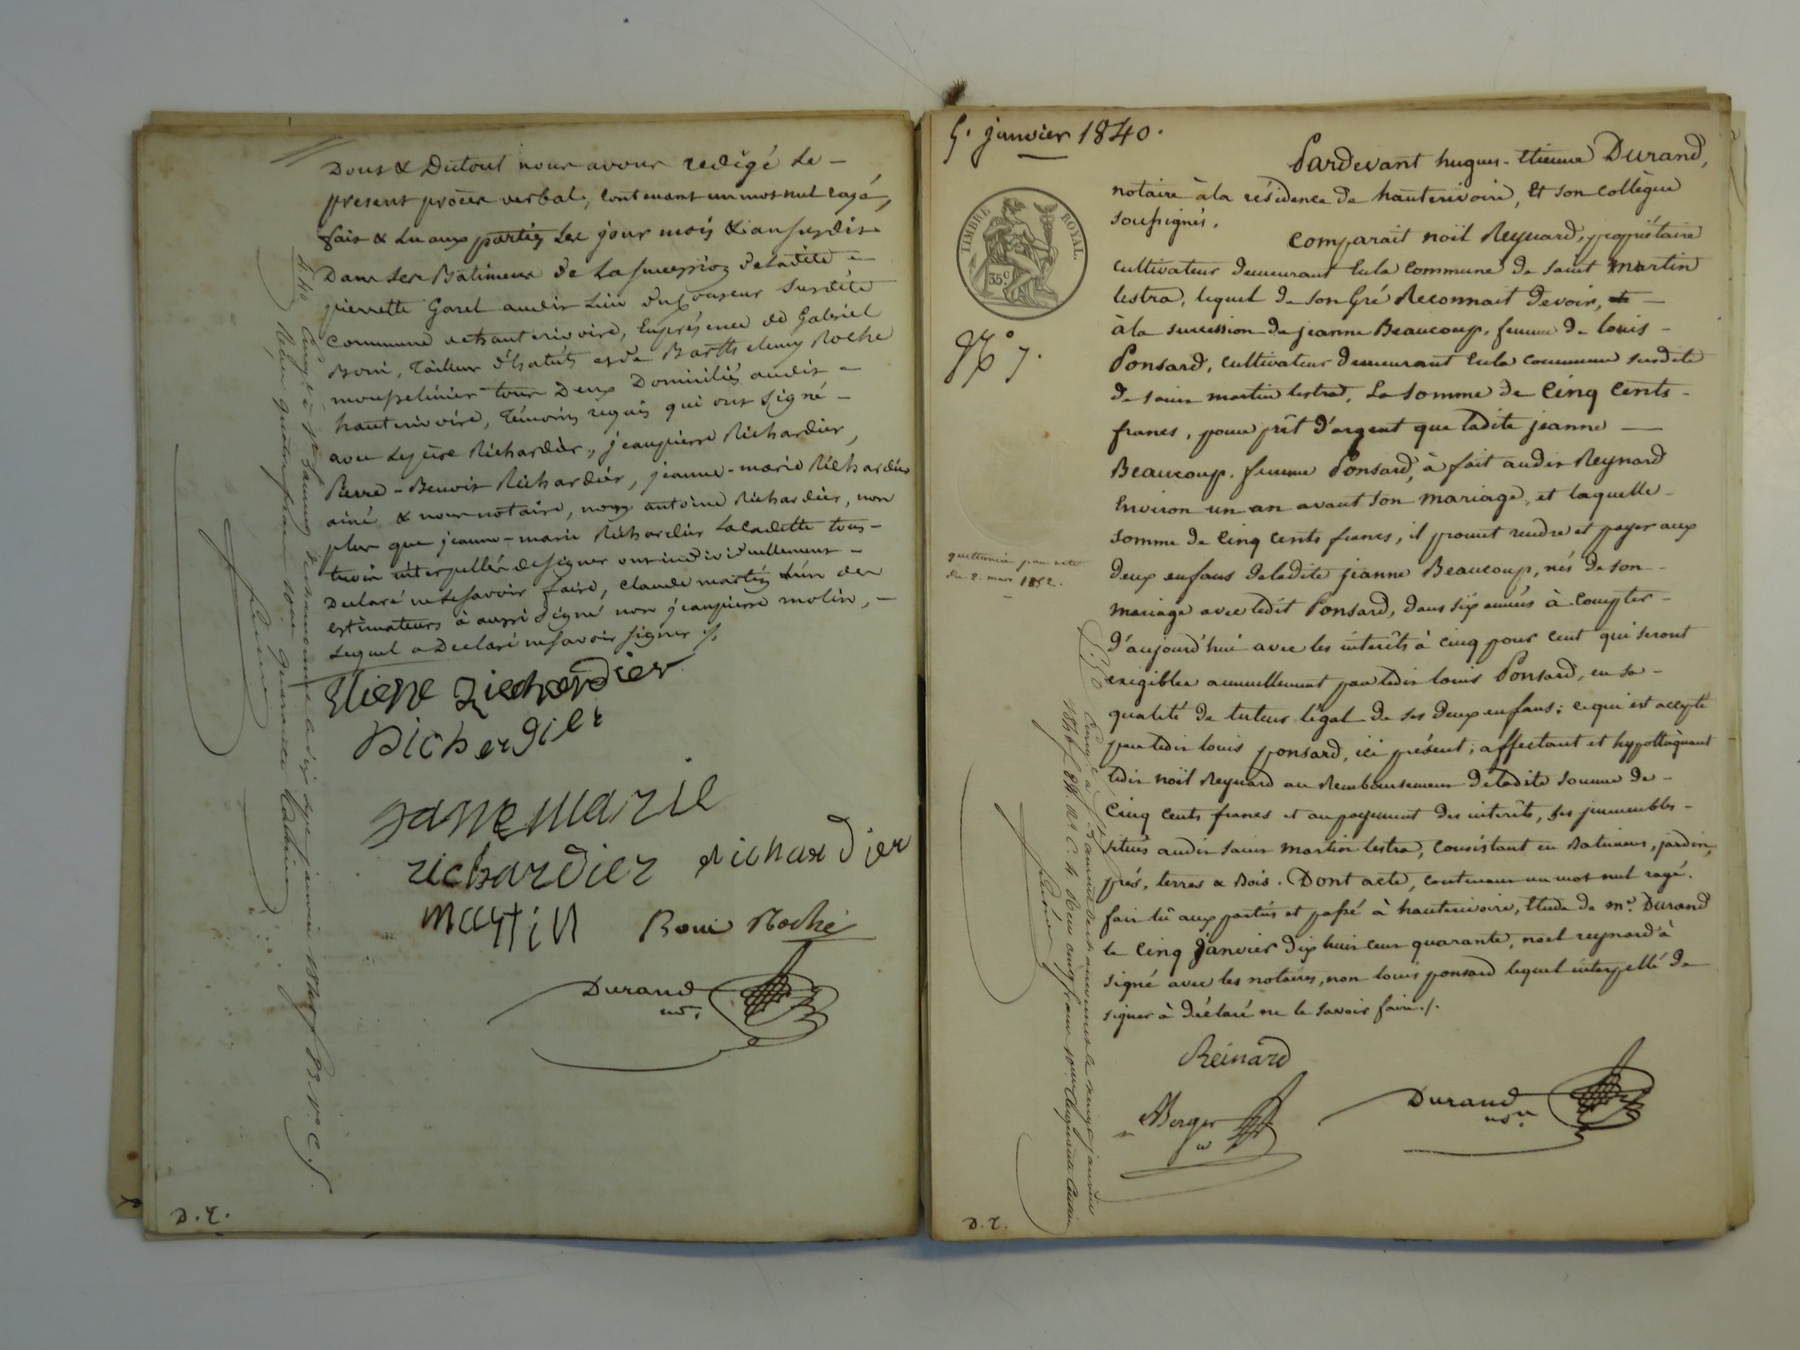 Dont & Dutout nous avons redigé le –
présent procès verbal, contenant un mot nul rayé,
fait & lu aux parties les jour mois & an susdits
Dans les Batimens de la succession de ladite –
pierrette Garel audit lieu du susdite
commune de hauterivoire, en présence de Gabriel
Boui, tailleur d'habits et de Barthelemy Roche
mousselinier tous deux Domiciliés audit –
hauterivoire, témoins requis qui ont signé –
avec le père Richardier, jeanpierre Richardier,
Pierre-Benoit Richardier, jeanne-marie Richardier
ainé & nous notaire, non antoine Richardier, non
plus que jeanne-marie Richardier la cadette tous –
trois interpellés de signer ont individuellement –
Declaré ne le savoir faire, claude martin l'un des
estimateurs à aussi signé non jeanpierre molin, –
lequel a Declaré ne savoir signer ./.
Richardier
Richardier
jane marie
richardier richardier
martin Boui Roche
Durand
nre.
D. Z.
5. janvier 1840.
TIMBRE ROYAL
35 c
No 7.
quittancé par acte
du 2. mars 1852.
Pardevant hugues-Etienne Durand,
notaire à la résidence de hauterivoire, et son collègue
soussignés.
Comparait noël Reynard, propriétaire
cultivateur demeurant en la commune de saint martin
lestra, lequel de son Gré Reconnait devoir, –
à la succession de jeanne Beaucoup, femme de louis –
Ponsard, cultivateur demeurant en la commune susdite
de saint martin lestra, la somme de Cinq Cents –
francs, pour prêt d'argent que ladite jeanne –
Beaucoup, femme Ponsard, à fait audit Reynard
Environ un an avant son mariage, et laquelle –
somme de cinq cents francs, il promet rendre et payer aux
deux enfans de ladite jeanne Beaucoup, nés de son –
mariage avec ledit Ponsard, dans six années à compter –
d'aujourd'hui avec les intérêts à cinq pour cent qui seront
exigibles annuellement par ledit louis Ponsard, en sa –
qualité de tuteur légal de ses deux enfans; ce qui est accepté
par ledit louis ponsard, ici présent; affectant et hypothéquant
ledit noël Reynard au Remboursement de ladite somme de –
Cinq cents francs et au payement des intérêts, ses immeubles –
situés audit saint martin lestra, consistant en Batimens, jardin,
prés, terres & Bois. Dont acte, contenant un mot nul rayé.
fait lu aux parties et passé à hauterivoire, étude de me. Durand
le Cinq janvier dix huit cent quarante, noel reynard à
signé avec les notaires, non louis ponsard lequel interpellé de
signer à déclaré ne le savoir faire ./.
Reinard
Berger
Durand
nre.
D. Z.